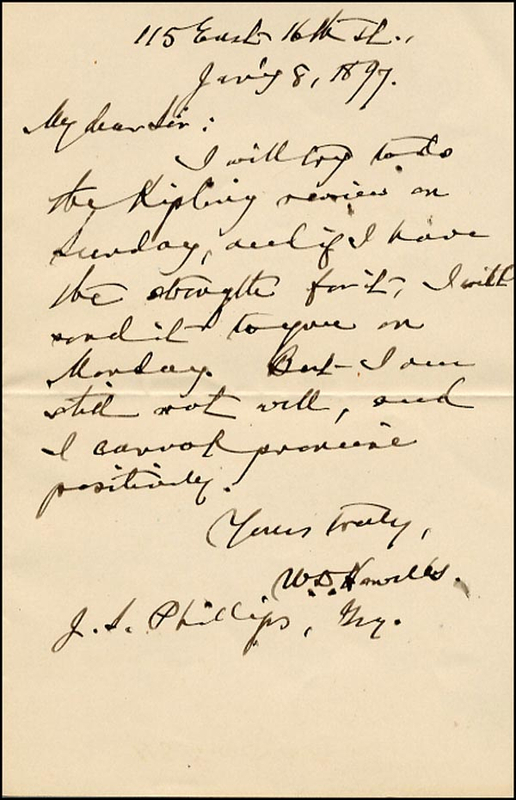 115 East 16th st.,
Jan'y 8, 1897.
My dear Sir:
I will try to do
the Kipling review on
Sunday, and if I have
the strength for it, I will
send it to you on
Monday. But I am
still not well, and
I cannot promise
positively.
Yours truly,
W. D. Howells.
J. S. Phillips, Esq.